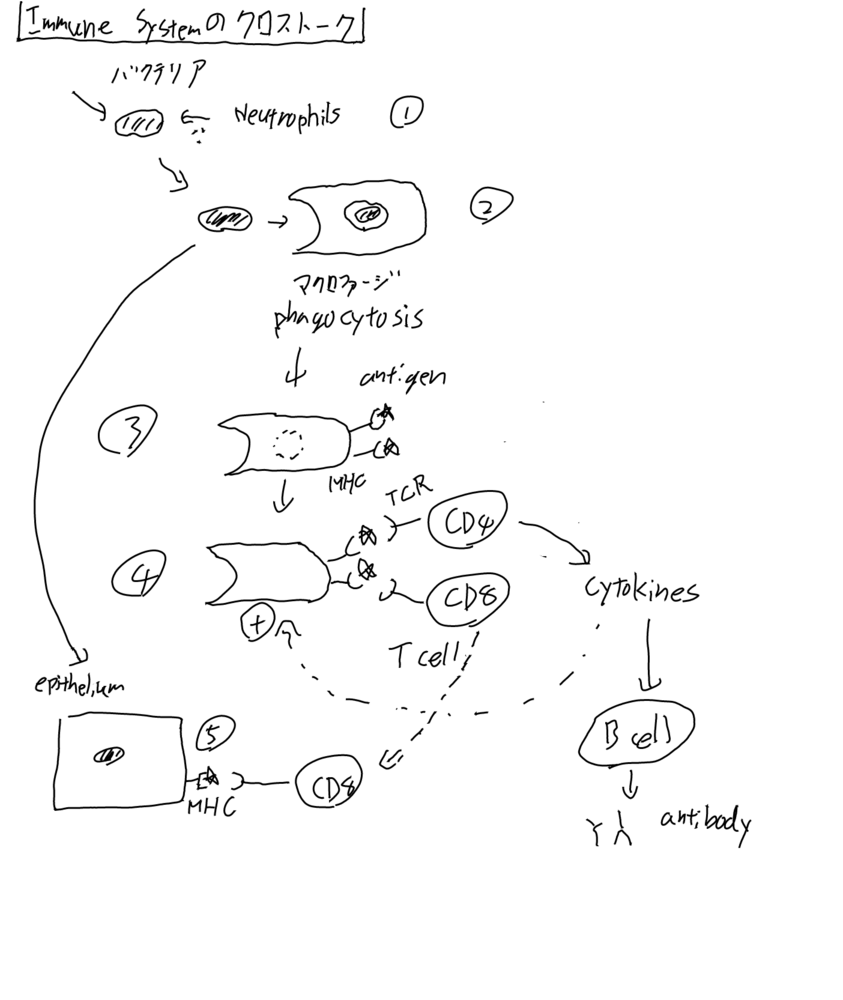 Immune Systemのクロストーク
バクテリア
Neutrophils ①
②
マクロファージ
phagocytosis
antigen
③
MHC
TCR
CD4
④
CD8
cytokines
+
T cell
epithelium
⑤
B cell
CD8
MHC
antibody